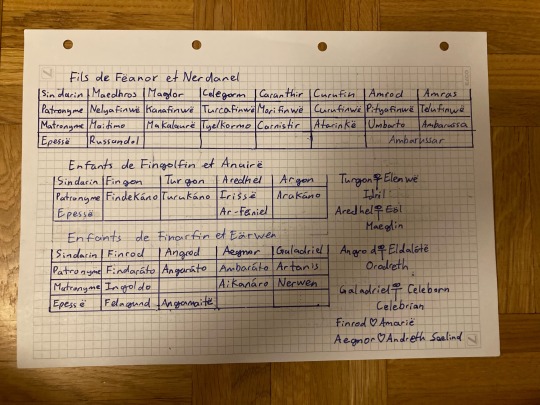 Fils de Fëanor et Nerdanel
Sindarin Maedhros Maglor Celegorm Caranthir Curufin Amrod Amras
Patronyme Nelyafinwë Kanafinwë Turcafinwë Morifinwë Curufinwë Pityafinwë Telufinwë
Matronyme Maitimo Makalaurë Tyelkormo Carnistir Atarinkë Umbarto Ambarussa
Epessë Russandol Ambarussar
Enfants de Fingolfin et Anairë
Sindarin Fingon Turgon Aredhel Argon
Patronyme Findekáno Turukáno Irissë Arakáno
Epessë Ar-Feiniel
Turgon Elenwë
Idril
Aredhel Eöl
Maeglin
Enfants de Finarfin et Eärwen
Sindarin Finrod Angrod Aegnor Galadriel
Patronyme Findaráto Angaráto Ambaráto Artanis
Matronyme Ingoldo Aikanáro Nerwen
Epessë Felagund Angamaitë
Angrod Eldalótë
Orodreth
Galadriel Celeborn
Celebrian
Finrod ♡ Amarië
Aegnor ♡ Andreth Saelind